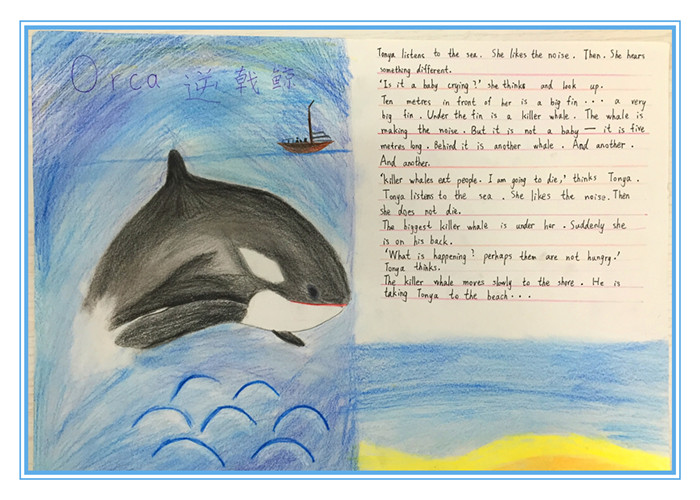 Orca 逆戟鲸
Tonya listens to the sea. She likes the noise. Then. She hears
something different.
'Is it a baby crying?' she thinks and look up.
Ten metres in front of her is a big fin .... a very
big fin. Under the fin is a killer whale. The whale is
making the noise. But it is not a baby — it is five
metres long. Behind it is another whale. And another.
And another.
'Killer whales eat people. I am going to die,' thinks Tonya.
Tonya listens to the sea. She likes the noise. Then
she does not die.
The biggest killer whale is under her. Suddenly she
is on his back.
'What is happening? perhaps them are not hungry.'
Tonya thinks.
The killer whale moves slowly to the shore. He is
taking Tonya to the beach...